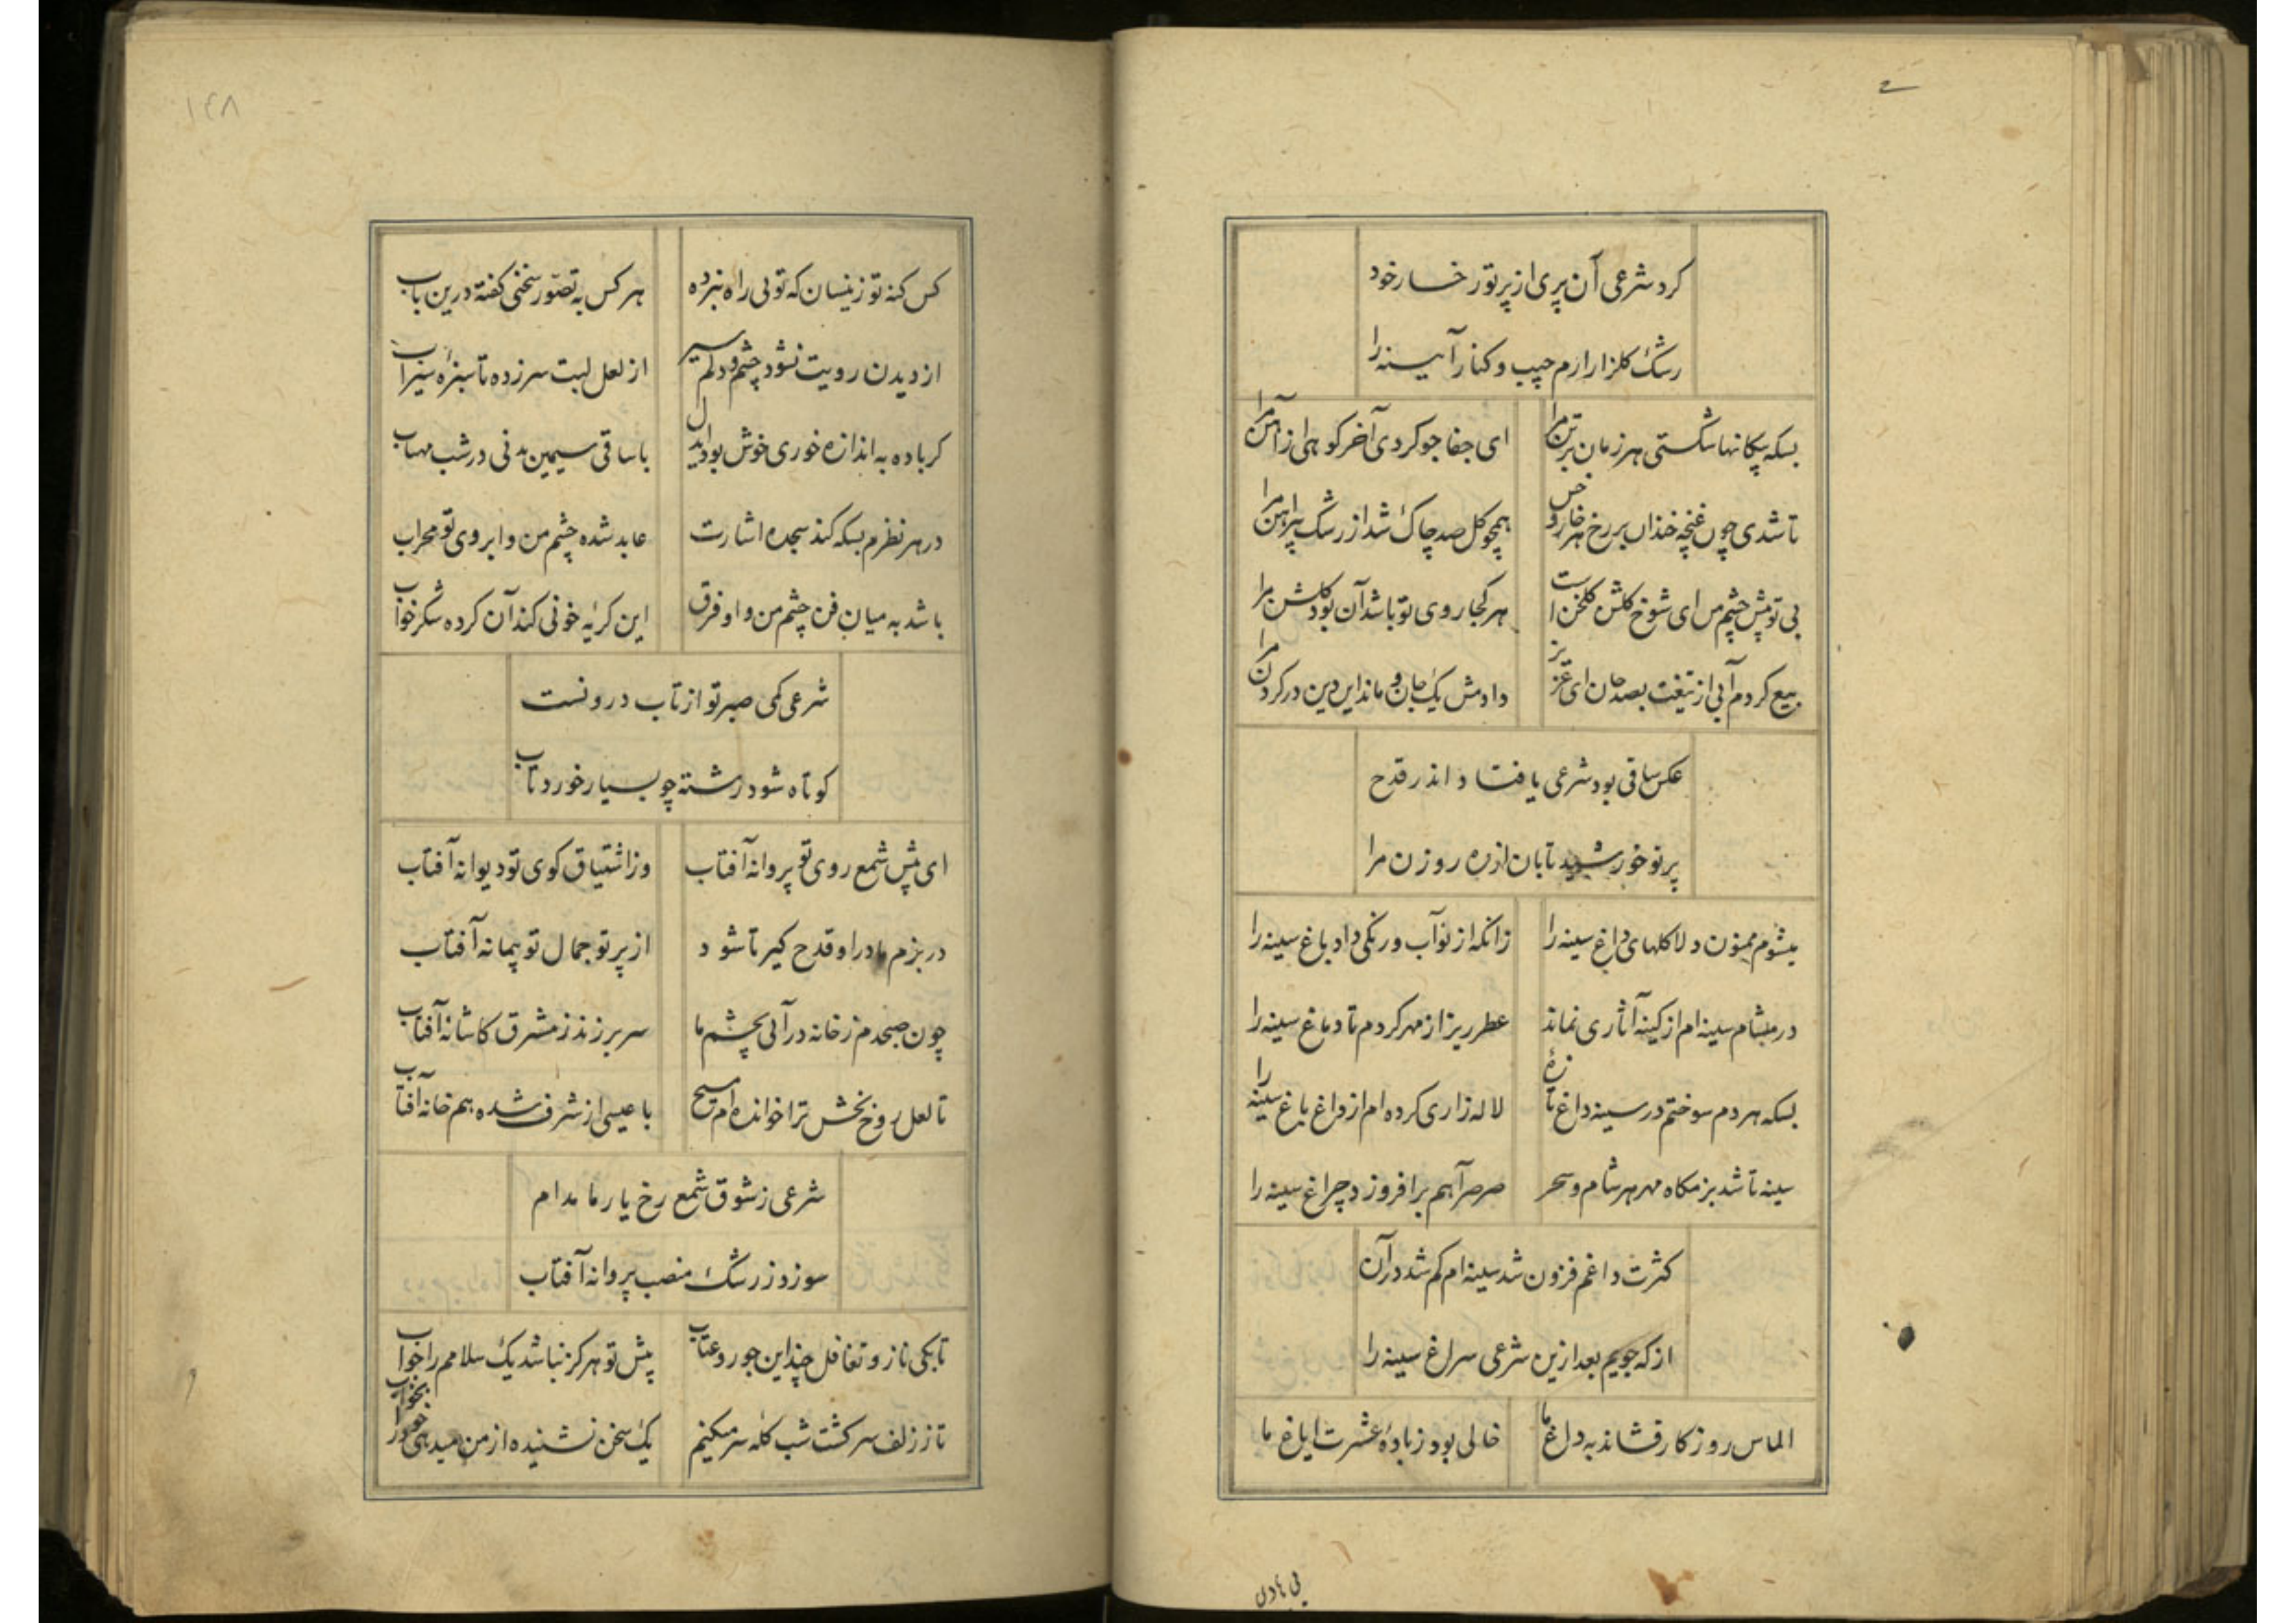 کرد شرعی آن پری از پرتو رخسار خود
رشک کلزار ارم جیب و کنار آیینه را
بسکه پیکانها شکستی هر زمان بر تن مرا ای جفا جو کردی آخر کوهی از آهن مرا
تا شدی چون غنچه خندان بر رخ هر خار و خس همچو کل صد چاک شد از رشک پیراهن مرا
بی تو پیش چشم من ای شوخ کلشن کلخن است هر کجا روی تو باشد آن بود کلشن مرا
بیع کردم آبی از تیغت بصد جان ای عزیز دادمش یک جان و ماند این دین در کردن مرا
عکس ساقی بود شرعی یا فتاد اندر قدح
پرتو خورشید تابان از ره روزن مرا
میشوم ممنون دلا کلهای داغ سینه را زانکه از نو آب و رنکی داد باغ سینه را
در مشام سینه ام از کینه آثاری نماند عطر ریز از مهر کردم تا دماغ سینه را
بسکه هر دم سوختم در سینه داغ تازهٔ لاله زاری کرده ام از داغ باغ سینه را
سینه تا شد بزمکاه مهر هر شام و سحر صرصر آهم برافروزد چراغ سینه را
کثرت داغم فزون شد سینه ام کم شد در آن
از که جویم بعد ازین شرعی سراغ سینه را
الماس روزکار فشاند به داغ ما خالی بود ز بادهٔ عشرت ایاغ ما
۱۴۸
کس کنه تو زینسان که تویی راه نبرده هر کس به تصوّر سخنی کفته درین باب
از دیدن رویت نشود چشم و دلم سیر از لعل لبت سر زده تا سبزهٔ سیراب
کر باده به اندازه خوری خوش بود ای دل با ساقی سیمین بدنی در شب مهتاب
در هر نظرم بسکه کند سجده اشارت عابد شده چشم من و ابروی تو محراب
باشد به میان فن چشم من و او فرق این کریهٔ خونی کند آن کرده شکر خواب
شرعی کمی صبر تو از تاب درونست
کوتاه شود رشته چو بسیار خورد تاب
ای پیش شمع روی تو پروانه آفتاب وز اشتیاق کوی تو دیوانه آفتاب
در بزم ما درا و قدح کیر تا شود از پرتو جمال تو پیمانه آفتاب
چون صبحدم ز خانه در آئی بچشم ما سر بر زند ز مشرق کاشانه آفتاب
تا لعل روح بخش ترا خوانده ام مسیح با عیسی از شرف شده هم خانه آفتاب
شرعی ز شوق شمع رخ یار ما مدام
سوزد ز رشک منصب پروانه آفتاب
تا بکی ناز و تغافل چند این جور و عتاب پیش تو هرکز نباشد یک سلامم را جواب
تا ز زلف سرکشت شب کله سر میکنیم یک سخن نشنیده از من میدهی خود را بخواب